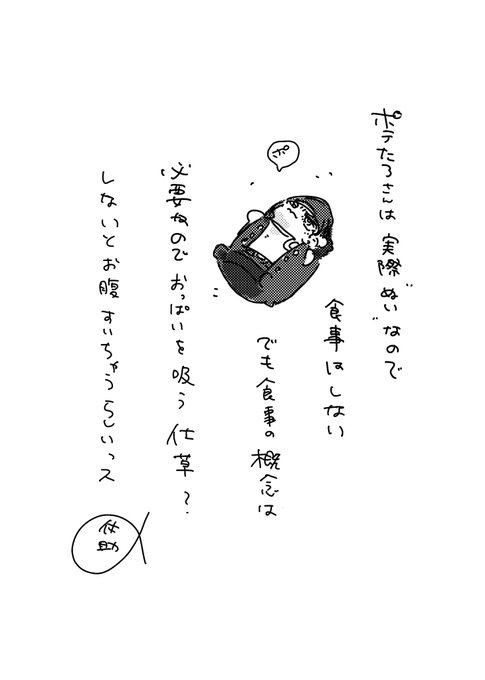 ポテたろさんは 実際"ぬい"なので
食事はしない
ポ
でも食事の概念は
必要なので おっぱいを吸う 仕草?
しないとお腹 すいちゃうらしいっス
仗助